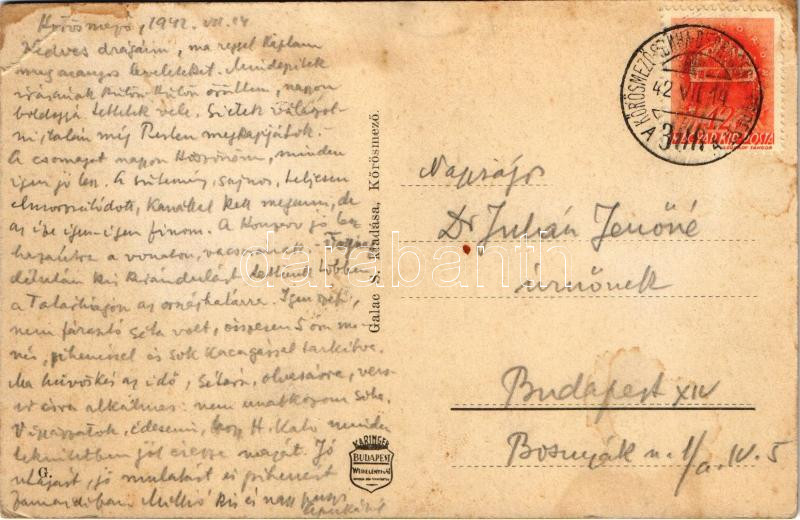 Kőrösmező, 1942. VII. 14
Kedves drágáim, ma reggel kaptam
meg aranyos leveleteket. Mindegyitek
írásának külön-külön örültem, nagyon
boldoggá tettetek vele. Sietek válaszol-
ni, talán még Pesten megkapjátok.
A csomagot nagyon köszönöm, minden
igen jó lesz. A sütemény, sajnos, teljesen
kanállal kell megenni, de
az íze igen-igen finom. A konzerv jó lesz
hazafelé a vonaton, vacsorának. Tegnap
délután kis kirándulást tettünk többen
a Tatárhágón az országhatárra. Igen szép,
nem fárasztó séta volt, összesen 5 óra me-
nés, pihenéssel és sok kacagással tarkítva.
Ma hűvöskés az idő, sétára, olvasásra, vers-
írásra alkalmas: nem unatkozom soha.
Vigyázzatok, édeseim, hogy H. Kató minden
tekintetben jól érezze magát. Jó
utazást, jó mulatást és pihenést
Zamárdiban. Millió kis és nagy puszi
Apukától
G.
Galac S. kiadása, Kőrösmező.
KARINGER
BUDAPEST
KŐRÖSMEZŐ
42 VII. 14
MAGYAR KIR. POSTA
Nagyságos
Dr Julán Jenőné
úrnőnek
Budapest XIV
Bosnyák u. 1/a. IV. 5
darabanth